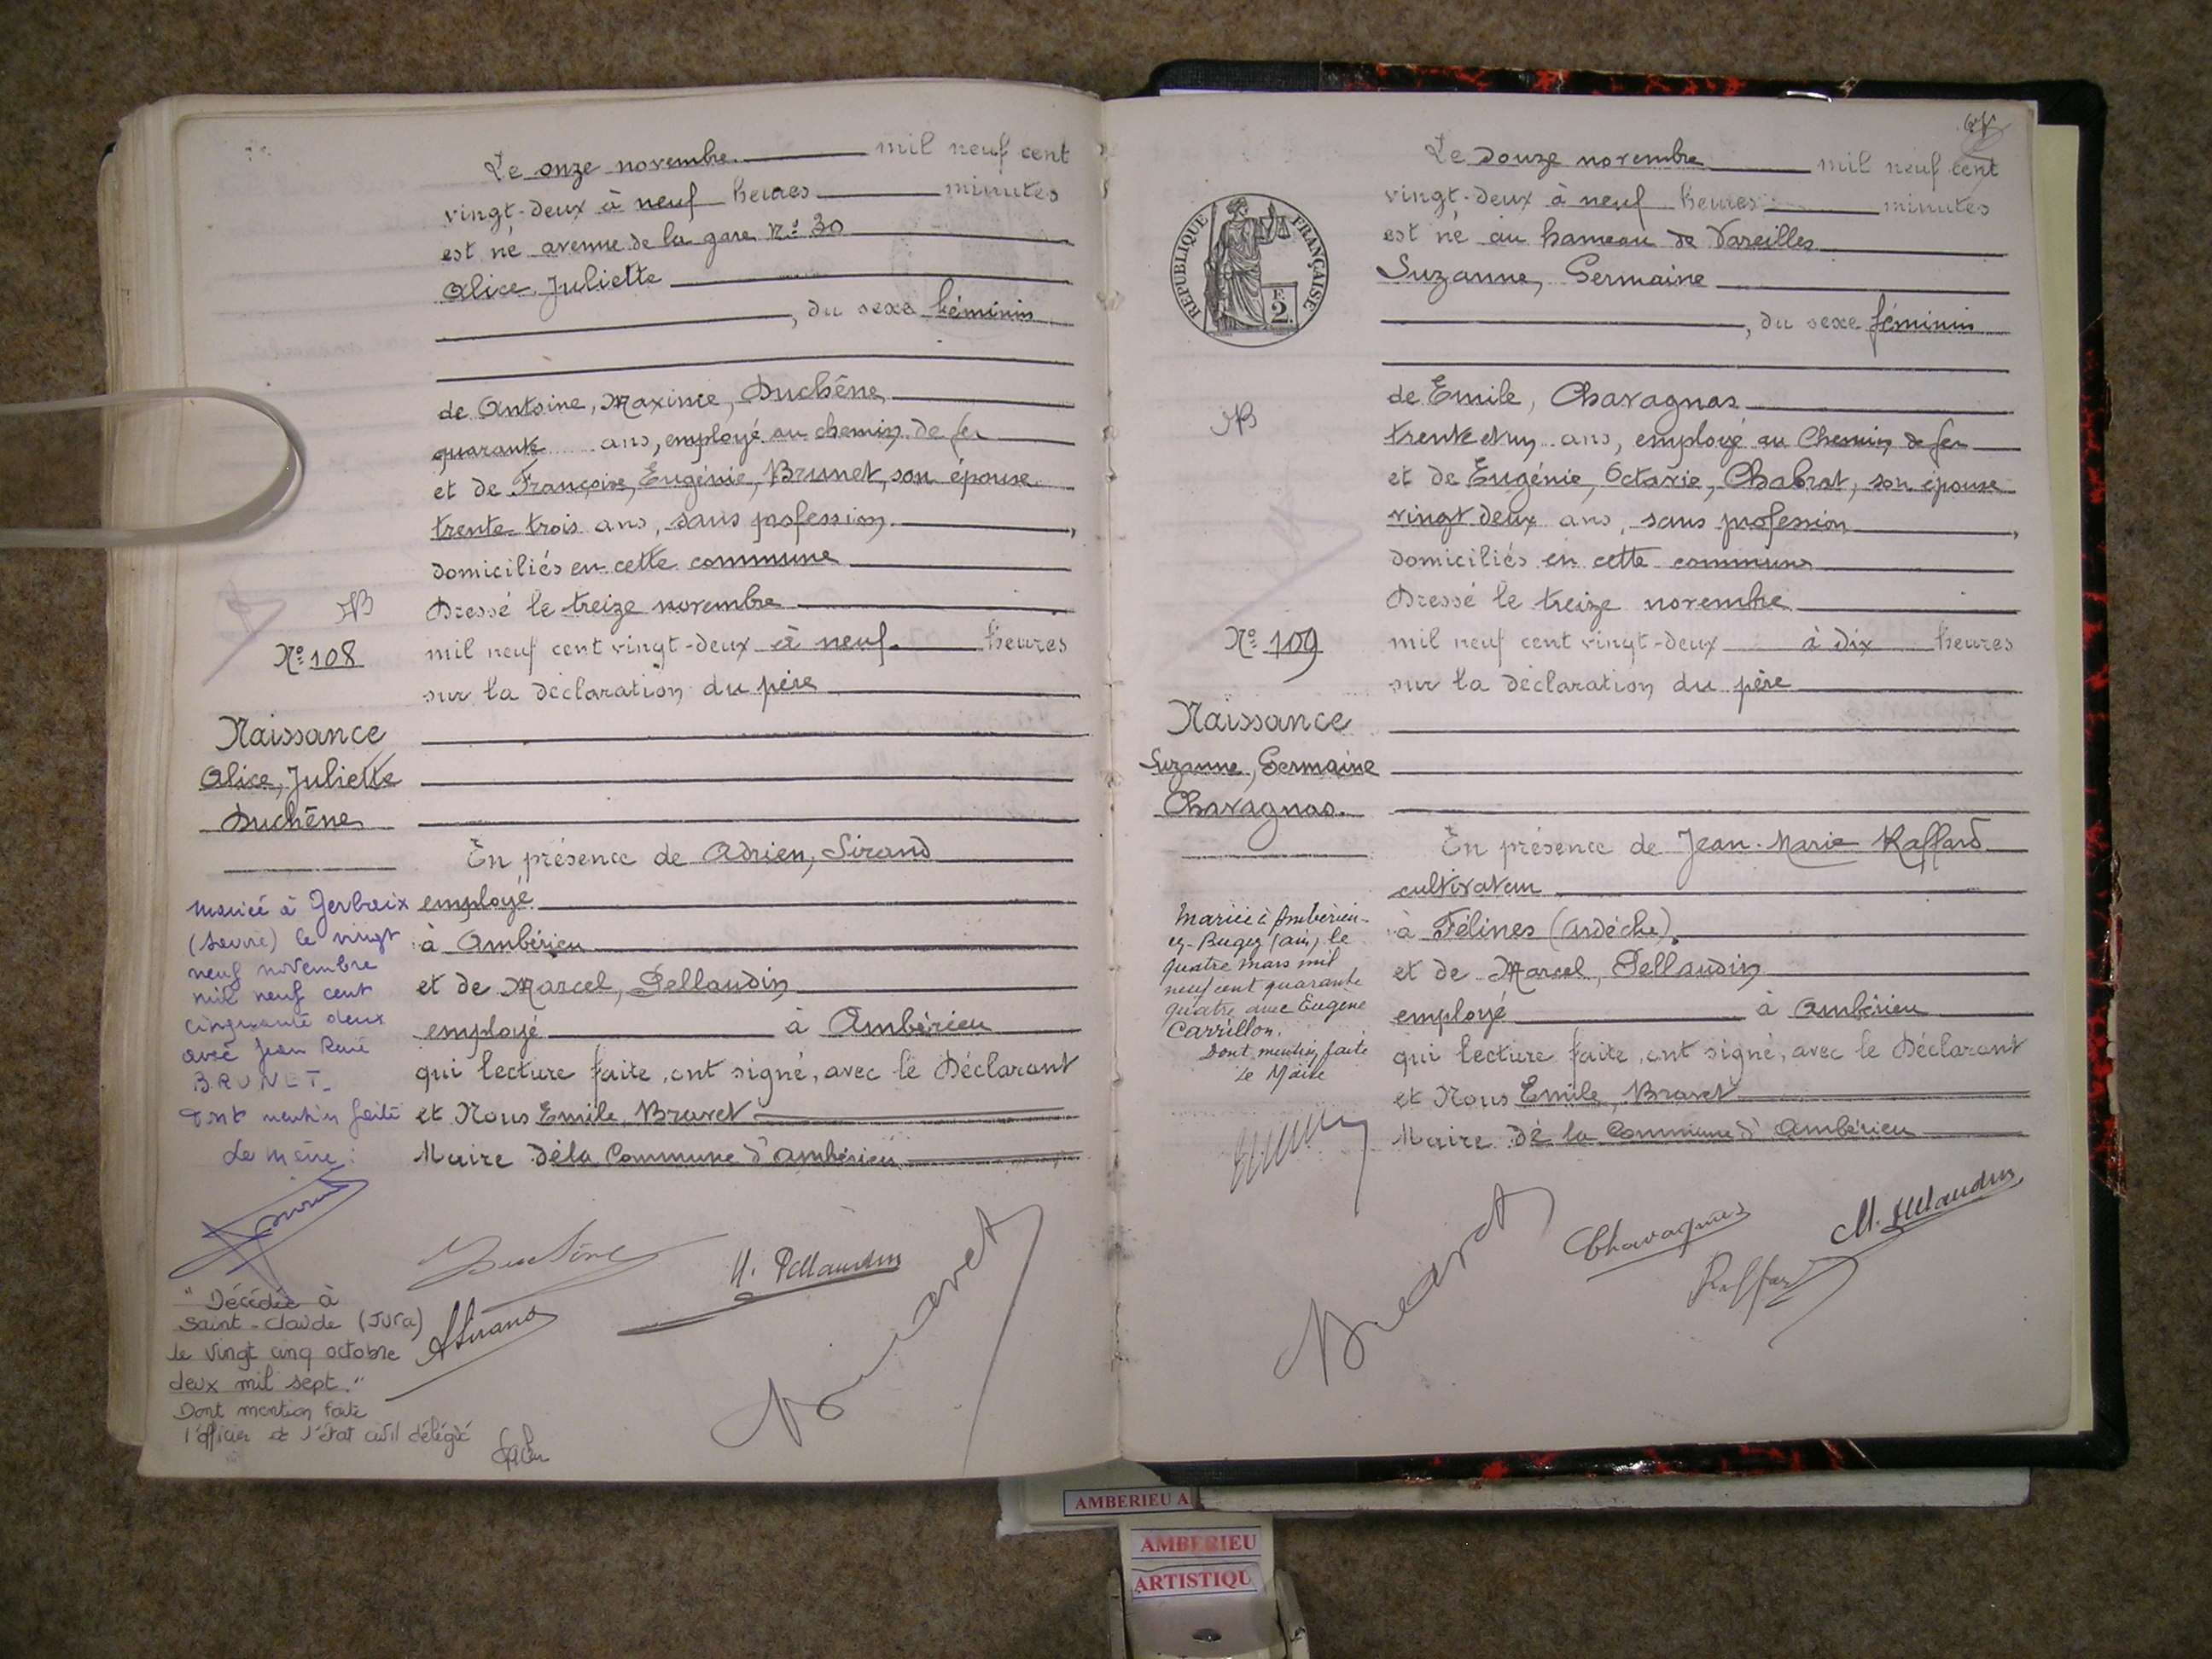 Le onze novembre mil neuf cent
vingt-deux à neuf heures minutes
est né avenue de la gare N° 30
Alice Juliette
, du sexe féminin
de Antoine, Maxime, Duchêne
quarante ans, employé au chemin de fer
et de Françoise, Eugénie, Brunet, son épouse
trente trois ans, sans profession ,
domiciliés en cette commune
Dressé le treize novembre
mil neuf cent vingt-deux à neuf heures
sur la déclaration du père
N° 108
Naissance
Alice, Juliette
Duchêne
En présence de Adrien, Sirand
employé
à Ambérieu
et de Marcel, Pellaudin
employé à Ambérieu
qui lecture faite, ont signé, avec le Déclarant
et Nous Emile, Bravet
Maire de la Commune d'Ambérieu
Mariée à Gerbaix
(Savoie) le vingt
neuf novembre
mil neuf cent
cinquante deux
avec Jean René
BRUNET_
Dont mention faite
Le maire :
Duchêne
M. Pellaudin
ASirand
Bravet
"Décédée à
Saint-Claude (Jura)
le vingt cinq octobre
deux mil sept."
Dont mention faite
l'officier de l'état civil délégué
Le douze novembre mil neuf cent
vingt-deux à neuf heures minutes
est né au hameau de Vareilles
Suzanne, Germaine
, du sexe féminin
RÉPUBLIQUE FRANÇAISE
F.
2.
de Emile, Chavagnas
trente et un ans, employé au Chemin de fer
et de Eugénie, Octavie, Chabrat, son épouse
vingt deux ans, sans profession ,
domiciliés en cette commune
Dressé le treize novembre
mil neuf cent vingt-deux à dix heures
sur la déclaration du père
N° 109
Naissance
Suzanne, Germaine
Chavagnas.
En présence de Jean-Marie Raffard
cultivateur
à Félines (Ardèche).
et de Marcel, Pellaudin
employé à Ambérieu
qui lecture faite, ont signé, avec le Déclarant
et Nous Emile, Bravet
Maire de la Commune d'Ambérieu
Mariée à Ambérieu-
en-Bugey (Ain) le
quatre mars mil
neuf cent quarante
quatre avec Eugène
Carrillon.
Dont mention faite
Le Maire
Bravet
Chavagnas
Raffard
M. Pellaudin
AMBERIEU A
AMBERIEU
ARTISTIQU